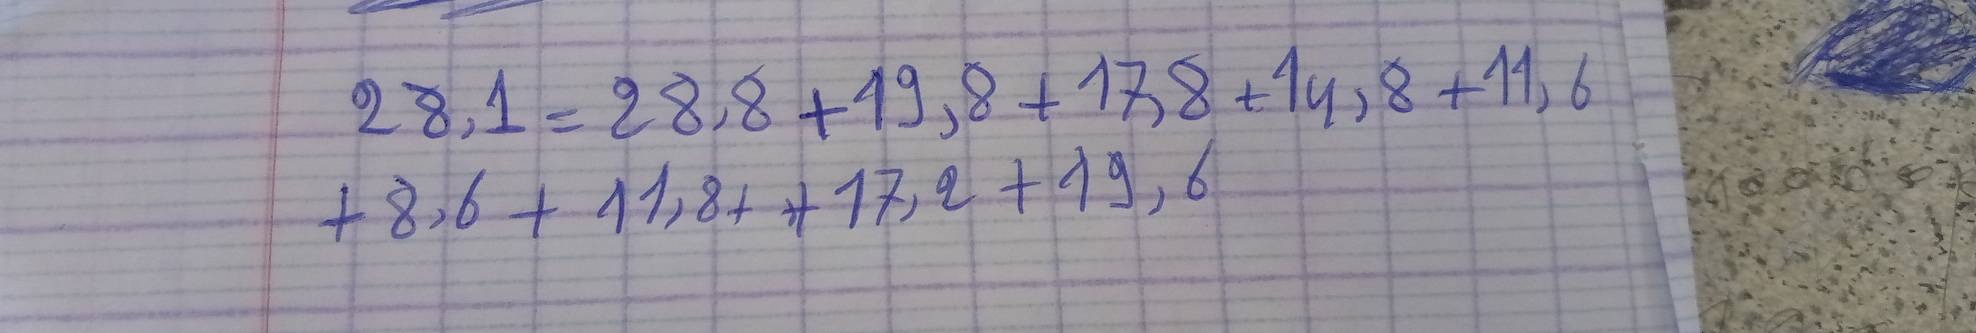 28,1 = 28,8 + 19,8 + 17,8 + 14,8 + 11,6
+ 8,6 + 11,8 + + 17,2 + 19,6